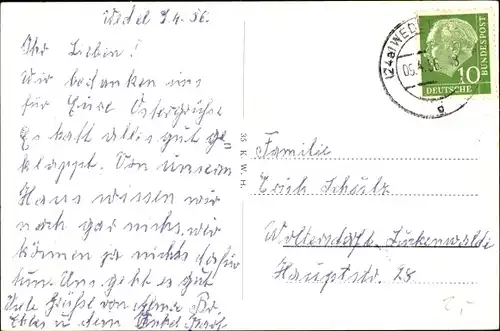 Wedel 5.4.56.
Ihr Lieben!
Wir bedanken uns
für Eure Ostergrüße
Es hat alles gut ge-
klappt. Von unserem
Haus wissen wir
noch gar nichts, wir
können ja nichts dafür
tun. Uns geht es gut
Viele Grüße von
u. dem Onkel
35 K.W.H.
(24a) WEDEL
05.4.56
10
DEUTSCHE
BUNDESPOST
Familie
Erich Schütz
Woltersdorf b. Luckenwalde
Hauptstr. 28